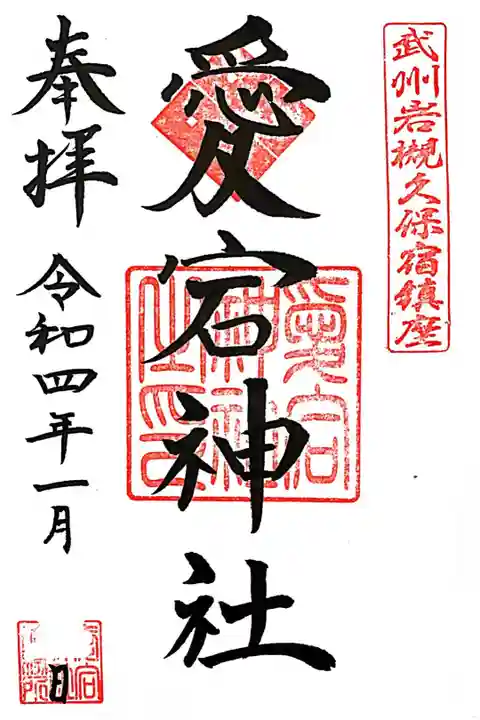 武州岩槻久保宿鎮座
愛宕神社
愛宕
神社
之印
奉拝
令和四年一月
日